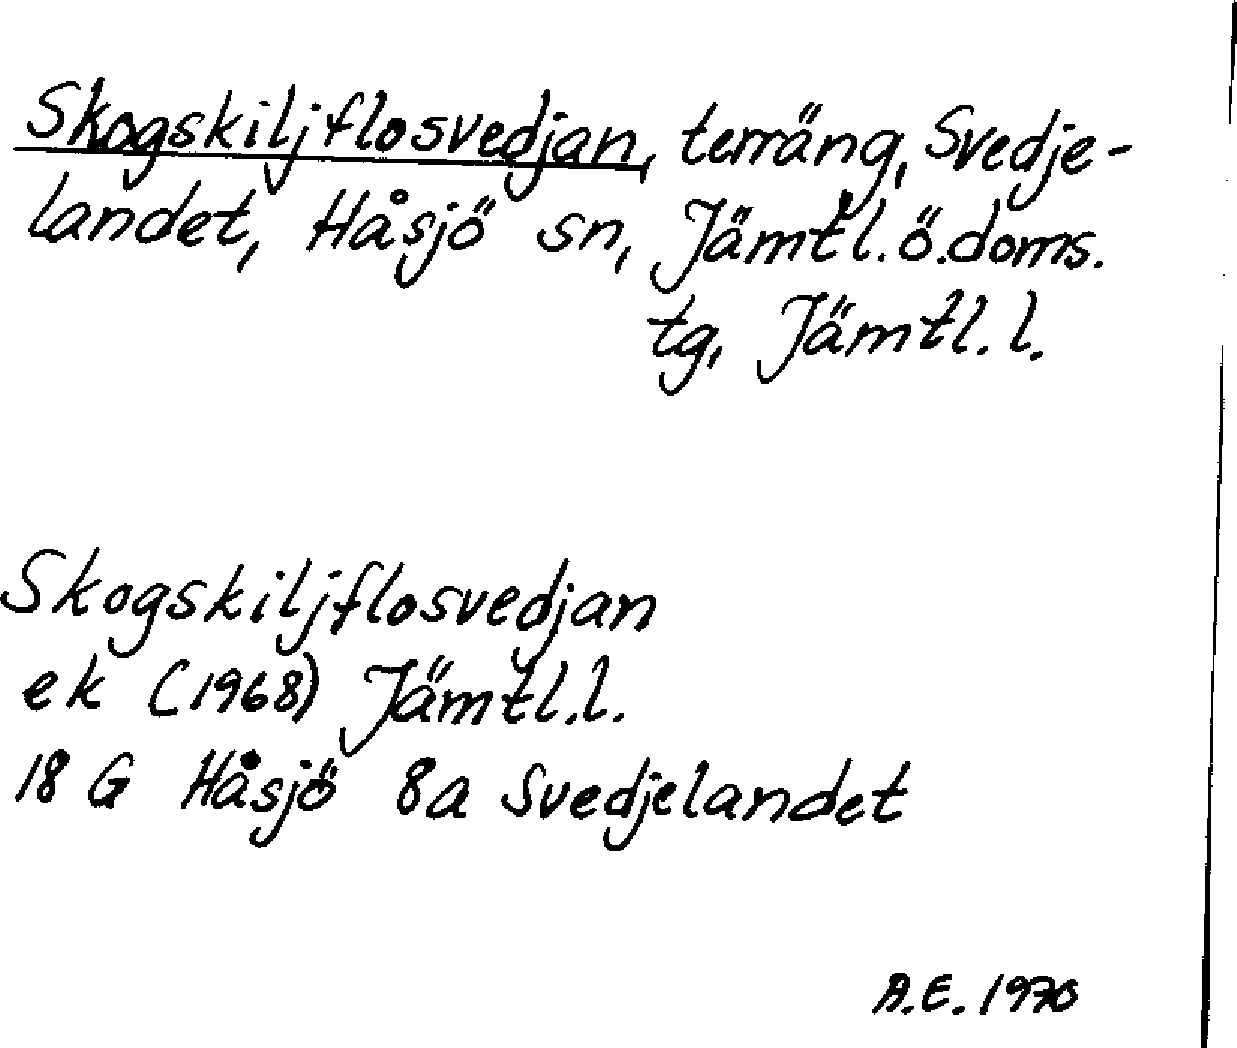 Skogskiljflosvedjan, terräng, Svedje-
landet, Håsjö sn, Jämtl. ö. doms.
tg, Jämtl. l.
Skogskiljflosvedjan
ek (1968) Jämtl. l.
18 G Håsjö 8a Svedjelandet
A.E. 1970